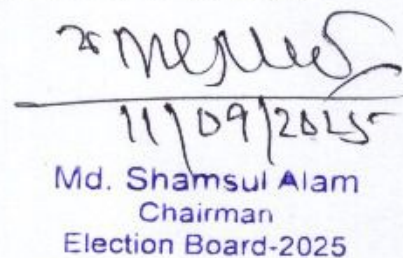 11/09/2025
Md. Shamsul Alam
Chairman
Election Board-2025